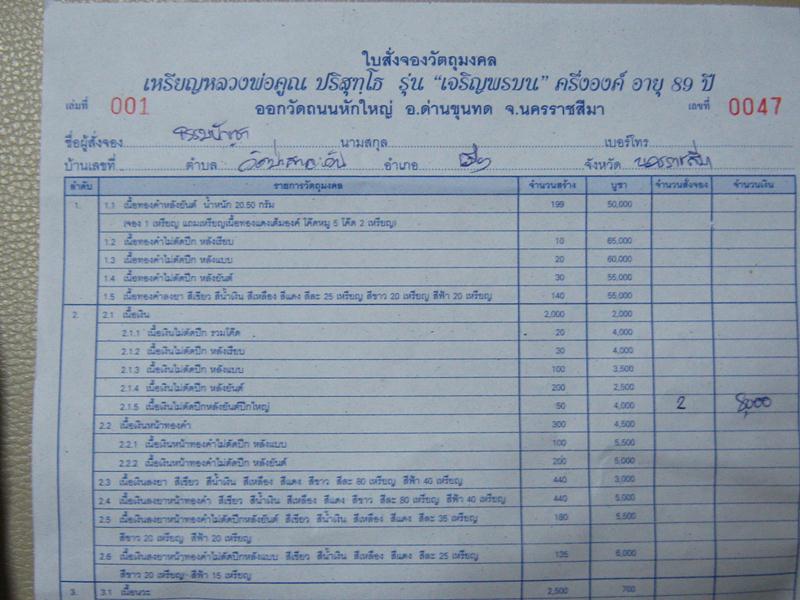 ใบสั่งจองวัตถุมงคล
เหรียญหลวงพ่อคูณ ปริสุทฺโธ รุ่น "เจริญพรบน" ครึ่งองค์ อายุ 89 ปี
เล่มที่ 001 ออกวัดถนนหักใหญ่ อ.ด่านขุนทด จ.นครราชสีมา เลขที่ 0047
ชื่อผู้สั่งจอง นามสกุล เบอร์โทร
บ้านเลขที่ ตำบล อำเภอ จังหวัด นครราชสีมา
ลำดับ รายการวัตถุมงคล จำนวนสร้าง บูชา จำนวนสั่งจอง จำนวนเงิน
1. 1.1 เนื้อทองคำหลังยันต์ น้ำหนัก 20.50 กรัม 199 50,000
(จอง 1 เหรียญ แถมเหรียญเนื้อทองแดงเต็มองค์ โค๊ดหมู 5 โค๊ด 2 เหรียญ)
1.2 เนื้อทองคำไม่ตัดปีก หลังเรียบ 10 65,000
1.3 เนื้อทองคำไม่ตัดปีก หลังแบบ 20 60,000
1.4 เนื้อทองคำไม่ตัดปีก หลังยันต์ 30 55,000
1.5 เนื้อทองคำลงยา สีเขียว สีน้ำเงิน สีเหลือง สีแดง สีละ 25 เหรียญ สีขาว 20 เหรียญ สีฟ้า 20 เหรียญ 140 55,000
2. 2.1 เนื้อเงิน 2,000 2,000
2.1.1 เนื้อเงินไม่ตัดปีก รวมโค๊ด 20 4,000
2.1.2 เนื้อเงินไม่ตัดปีก หลังเรียบ 30 4,000
2.1.3 เนื้อเงินไม่ตัดปีก หลังแบบ 100 3,500
2.1.4 เนื้อเงินไม่ตัดปีก หลังยันต์ 200 2,500
2.1.5 เนื้อเงินไม่ตัดปีกหลังยันต์ปีกใหญ่ 50 4,000 2 8,000
2.2 เนื้อเงินหน้าทองคำ 300 4,500
2.2.1 เนื้อเงินหน้าทองคำไม่ตัดปีก หลังแบบ 100 5,500
2.2.2 เนื้อเงินหน้าทองคำไม่ตัดปีก หลังยันต์ 200 5,000
2.3 เนื้อเงินลงยา สีเขียว สีน้ำเงิน สีเหลือง สีแดง สีขาว สีละ 80 เหรียญ สีฟ้า 40 เหรียญ 440 3,000
2.4 เนื้อเงินลงยาหน้าทองคำ สีเขียว สีน้ำเงิน สีเหลือง สีแดง สีขาว สีละ 80 เหรียญ สีฟ้า 40 เหรียญ 440 5,000
2.5 เนื้อเงินลงยาหน้าทองคำไม่ตัดปีกหลังยันต์ สีเขียว สีน้ำเงิน สีเหลือง สีแดง สีละ 35 เหรียญ 180 5,500
สีขาว 20 เหรียญ สีฟ้า 20 เหรียญ
2.6 เนื้อเงินลงยาหน้าทองคำไม่ตัดปีกหลังแบบ สีเขียว สีน้ำเงิน สีเหลือง สีแดง สีละ 25 เหรียญ 135 6,000
สีขาว 20 เหรียญ สีฟ้า 15 เหรียญ
3. 3.1 เนื้อนวะ 2,500 700